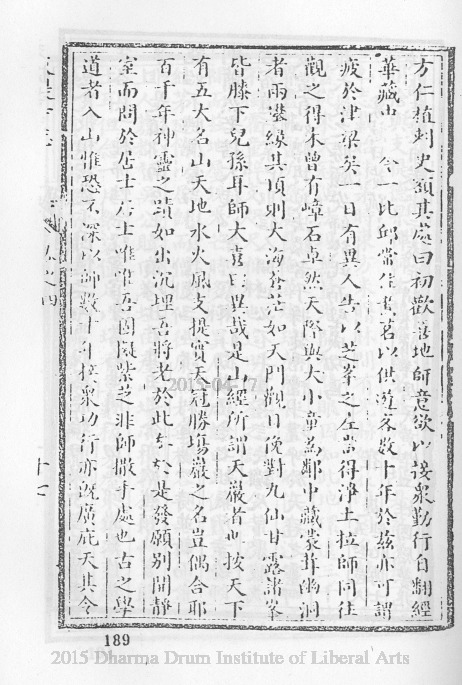 方仁植刺史額其處曰初歡喜地師意欲以接眾勤行自翻經
華藏中　令一比邱常住煮茗以供遊客數十年於茲亦可謂
疲於津梁矣一日有異人告以芝峯之左當得淨土拉師同往
觀之得未曾有嶂石卓然天際與大小童為鄰中藏蒙茸幽洞
者兩攀緣其頂則大海蒼茫如天門觀日俛對九仙甘露諸峯
皆膝下兒孫耳師大喜曰異哉是山經所謂天巖者也按天下
有五大名山天地水火風支提實天冠勝場巖之名豈偶合耶
百千年神靈之蹟如出沉埋吾將老於此矣於是發願別開靜
室而問於居士居士唯唯吾固擬紫芝非師撒手處也古之學
道者入山惟恐不深以師數十年接眾功行亦既廣庇天其令
卷之四
十七
189
2015-04-17
2015 Dharma Drum Institute of Liberal Arts